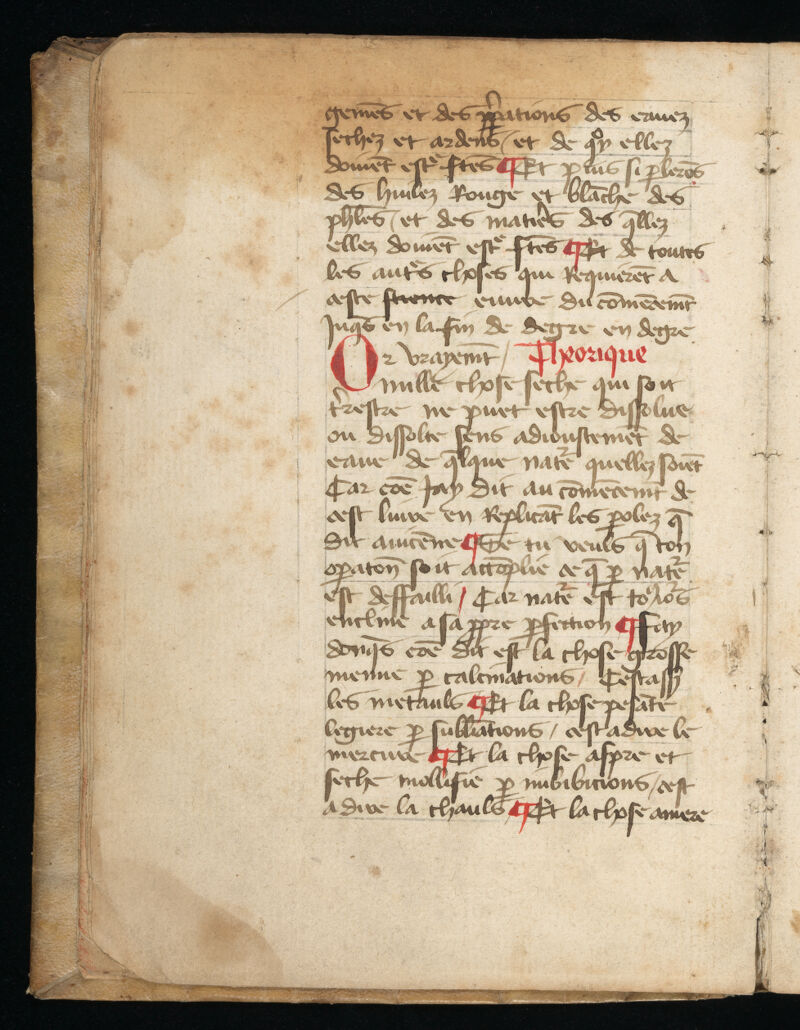 gemēs et des p̄pations des eauez
sechez et ardens / et de qͦy ellez
doiuēt estͬ f̄tes ¶ Et pͥ lus si ꝑlerōs
des huilez Rouge et blāche des
phl̄es / et des matieˀs des q̄llez
ellez doiuēt estͬ f̄tes ¶ Et de toutes
les autˀs choses qui Requierēt a
ceste science euure du cōmēcemt̄
Juqs̄ en la fin de degre en degre
Or vrayemt̄ / Theorique
nulle chose seche qui soit
tˀrestre ne puet estre dissolue
ou dissolte sens adioustemēt de
eaue de q̄lque natˀe quellez soiēt
Car cōe Jay dit au cōmēcemt̄ de
cest liure en Replicāt les ꝑolez q̄
dit auicēne ¶ Se tu veuls q̄ ton
oꝑaton̄ soit accōplie ce q̄ ꝑ natˀe
est deffailli / Car natˀe est toͦiōs
encline a sa ꝓpre ꝑfection ¶ Fay
donqs̄ cōe dit est la chose grosse
menue ꝑ calcinations / Cestass
les metauls ¶ Et la chose pesāte
legiere ꝑ subl̄iations / cest a dire le
mercure ¶ Et la chose aspre et
seche mollifie ꝑ imbibicions / cest
a dire la chauls ¶ Et la chose amere